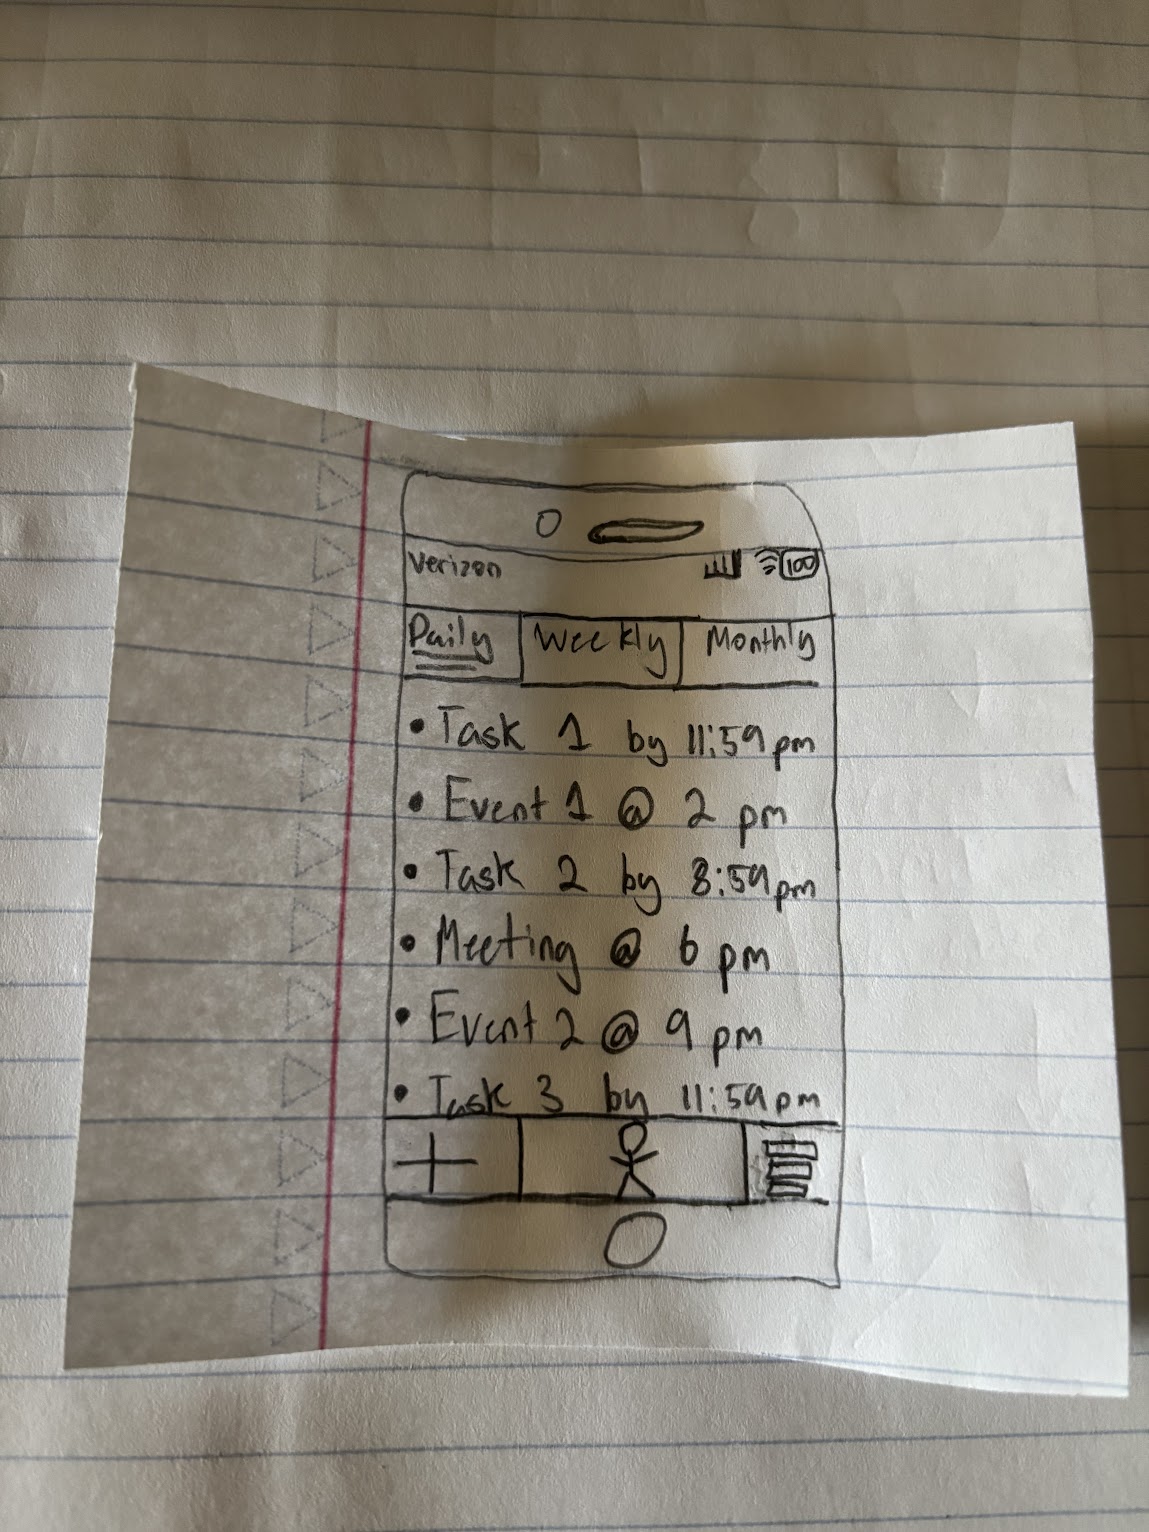 Verizon 100
Daily Weekly Monthly
• Task 1 by 11:59pm
• Event 1 @ 2 pm
• Task 2 by 8:59pm
• Meeting @ 6 pm
• Event 2 @ 9 pm
• Task 3 by 11:59pm